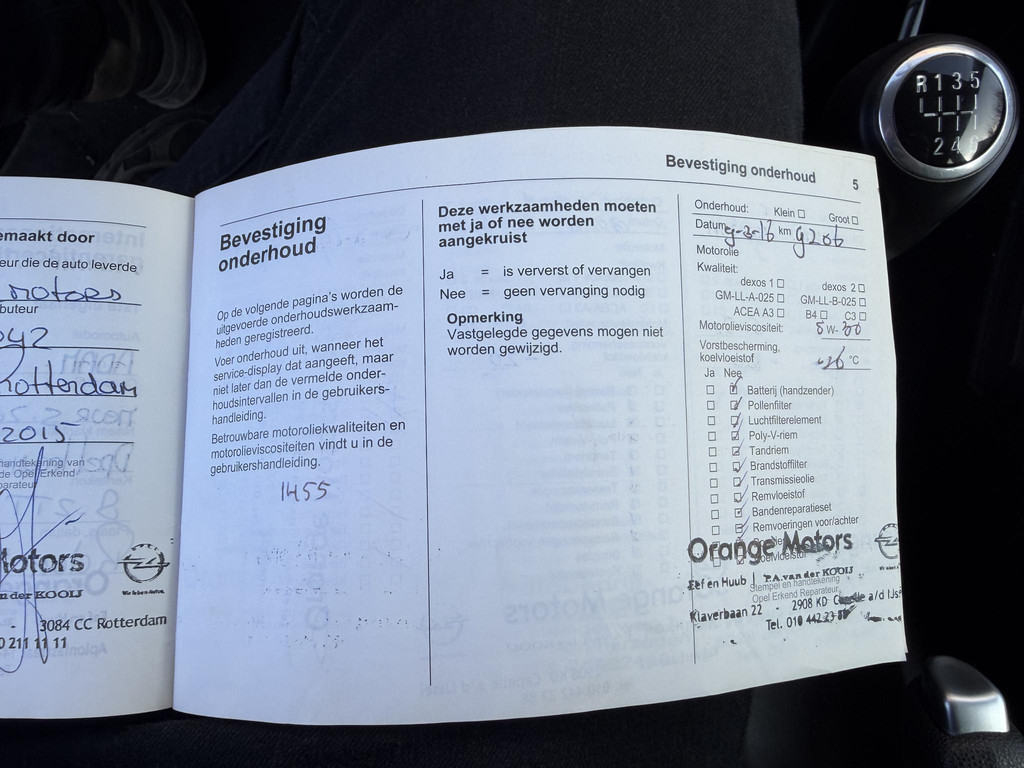 emaakt door
eur die de auto leverde
motors
buteur
Rotterdam
2015
handtekening van
de Opel Erkend
parateur
Motors
n der KOOIJ
3084 CC Rotterdam
0 211 11 11
Bevestiging
onderhoud
Op de volgende pagina's worden de
uitgevoerde onderhoudswerkzaam-
heden geregistreerd.
Voer onderhoud uit, wanneer het
service-display dat aangeeft, maar
niet later dan de vermelde onder-
houdsintervallen in de gebruikers-
handleiding.
Betrouwbare motoroliekwaliteiten en
motorolieviscositeiten vindt u in de
gebruikershandleiding.
1455
Deze werkzaamheden moeten
met ja of nee worden
aangekruist
Ja = is ververst of vervangen
Nee = geen vervanging nodig
Opmerking
Vastgelegde gegevens mogen niet
worden gewijzigd.
Bevestiging onderhoud 5
Onderhoud: Klein Groot
Datum 9-3-16 km 9206
Motorolie
Kwaliteit:
dexos 1 dexos 2
GM-LL-A-025 GM-LL-B-025
ACEA A3 B4 C3
Motorolieviscositeit: 5 W-30
Vorstbescherming,
koelvloeistof -36 °C
Ja Nee
Batterij (handzender)
Pollenfilter
Luchtfilterelement
Poly-V-riem
Tandriem
Brandstoffilter
Transmissieolie
Remvloeistof
Bandenreparatieset
Remvoeringen voor/achter
Koelvloeistof
Orange Motors
Eef en Huub P.A. van der KOOIJ
Stempel en handtekening
Opel Erkend Reparateur
Klaverbaan 22 - 2908 KD a/d IJs
Tel. 010 442 23
R 1 3 5
2 4